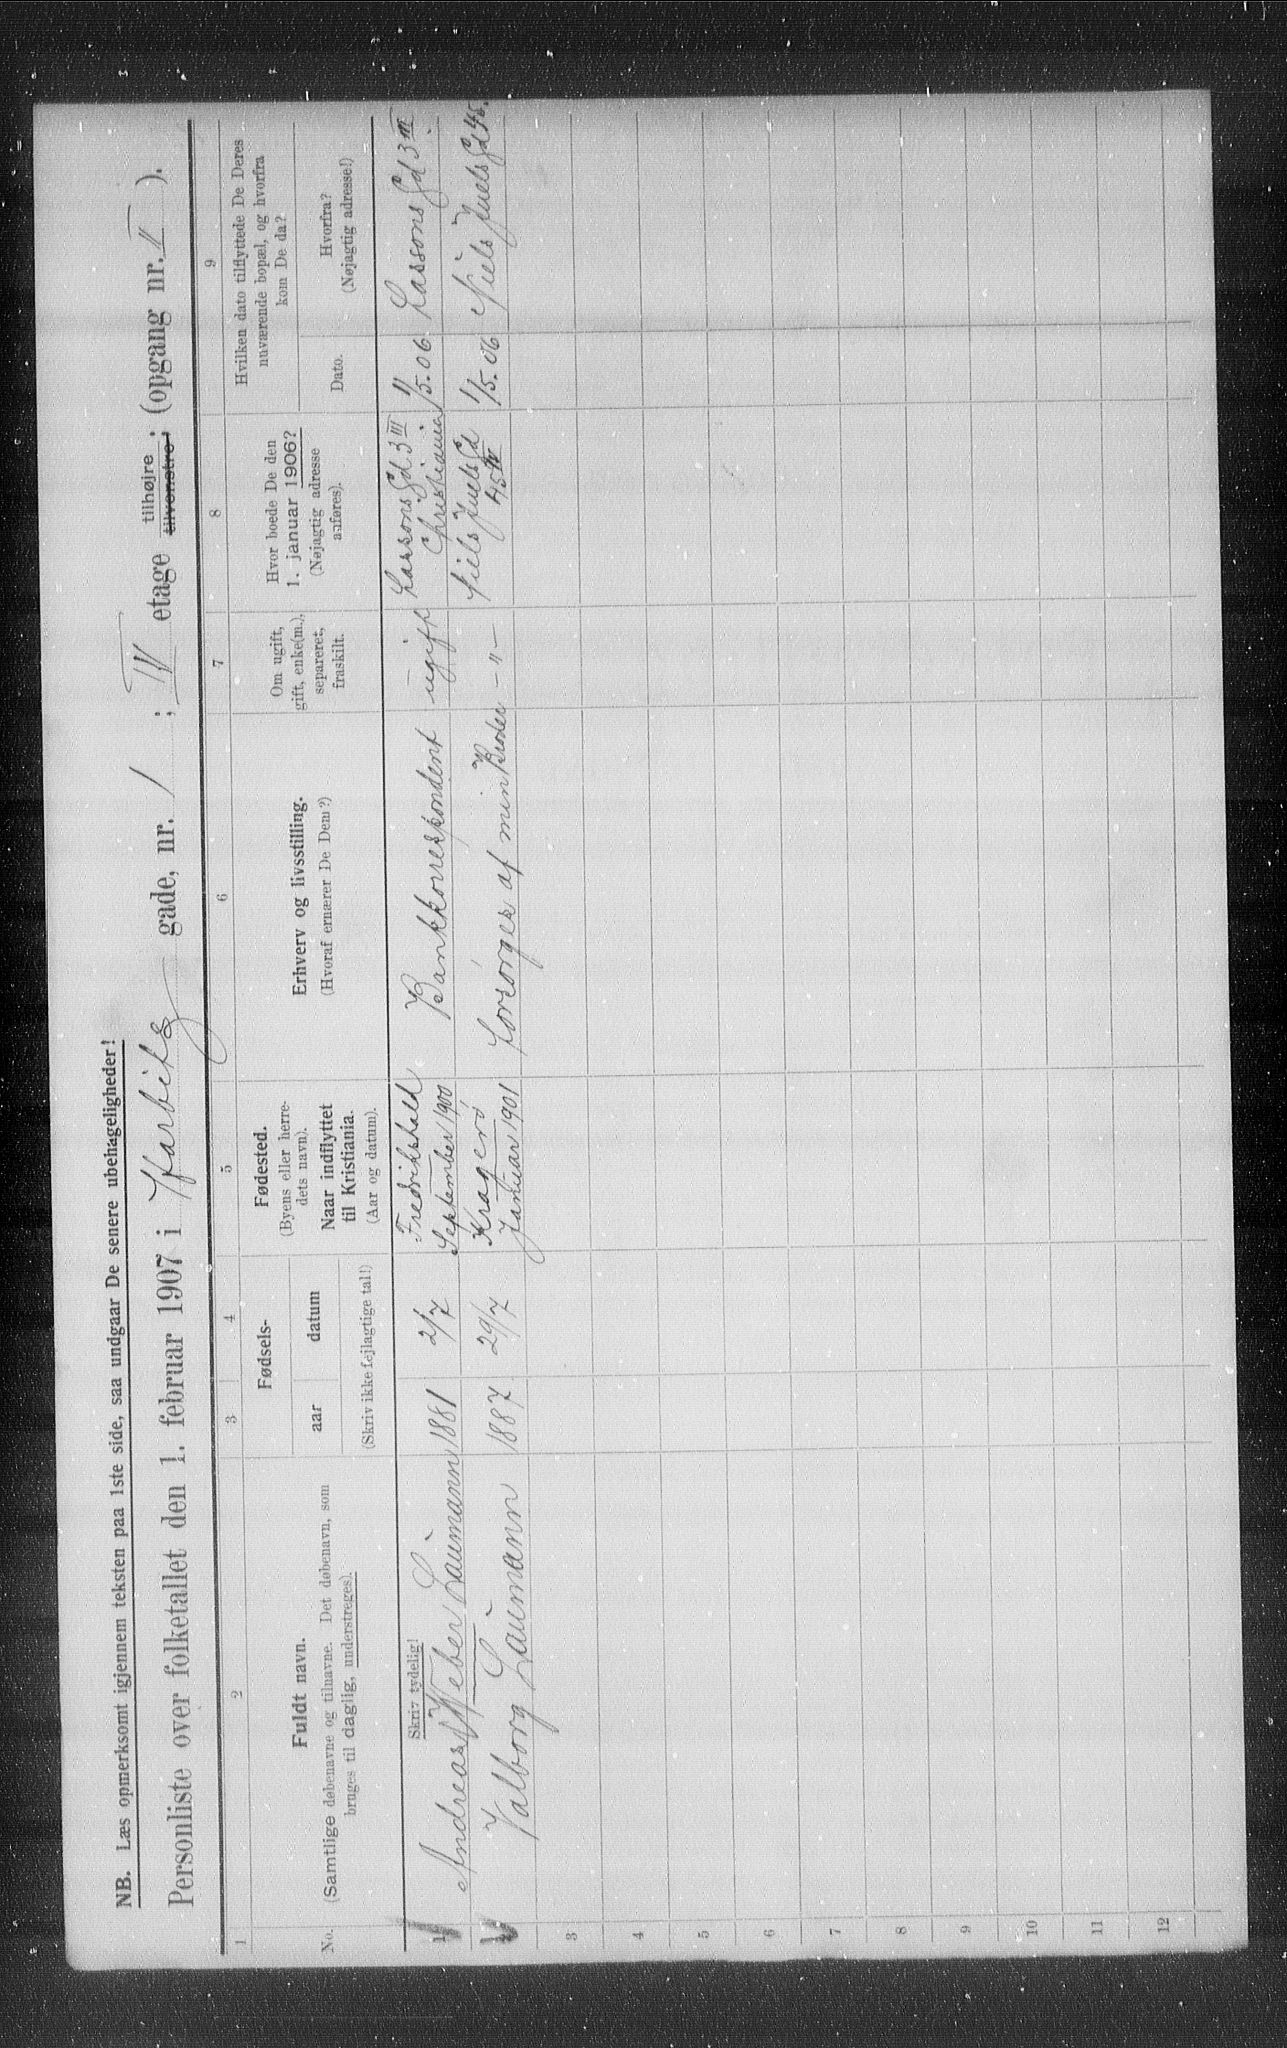 NB. Læs opmerksomt igjennem teksten paa 1ste side, saa undgaar De senere ubehageligheder!
Personliste over folketallet den 1. februar 1907 i Harbitz gade, nr. 1; IV etage tilhøjre; tilvenstre; (opgang nr. II).
1 2 3 4 5 6 7 8 9
No.
Fuldt navn.
(Samtlige døbenavne og tilnavne. Det døbenavn, som
bruges til daglig, understreges).
Fødsels-
aar datum
(Skriv ikke fejlagtige tal!)
Fødested.
(Byens eller herre-
dets navn).
Naar indflyttet
til Kristiania.
(Aar og datum).
Erhverv og livsstilling.
(Hvoraf ernærer De Dem?)
Om ugift,
gift, enke(m.),
separeret,
fraskilt.
Hvor boede De den
1. januar 1906?
(Nøjagtig adresse
anføres).
Hvilken dato tilflyttede De Deres
nuværende bopæl, og hvorfra
kom De da?
Dato.
Hvorfra?
(Nøjagtig adresse!)
Skriv tydelig!
1 Andreas Weber Laumann 1881 2/7 Fredrikshald September 1900 Bankkorrespondent ugift Lassons Gd 3 III Christiania 1/5.06 Lassons Gd 3 III
2 Valborg Laumann 1887 29/7 Kragerö Januar 1901 Forsörges af min Broder -"- Niels Juels Gd 45 IV 1/5.06 Niels Juels Gd 45.
3
4
5
6
7
8
9
10
11
12